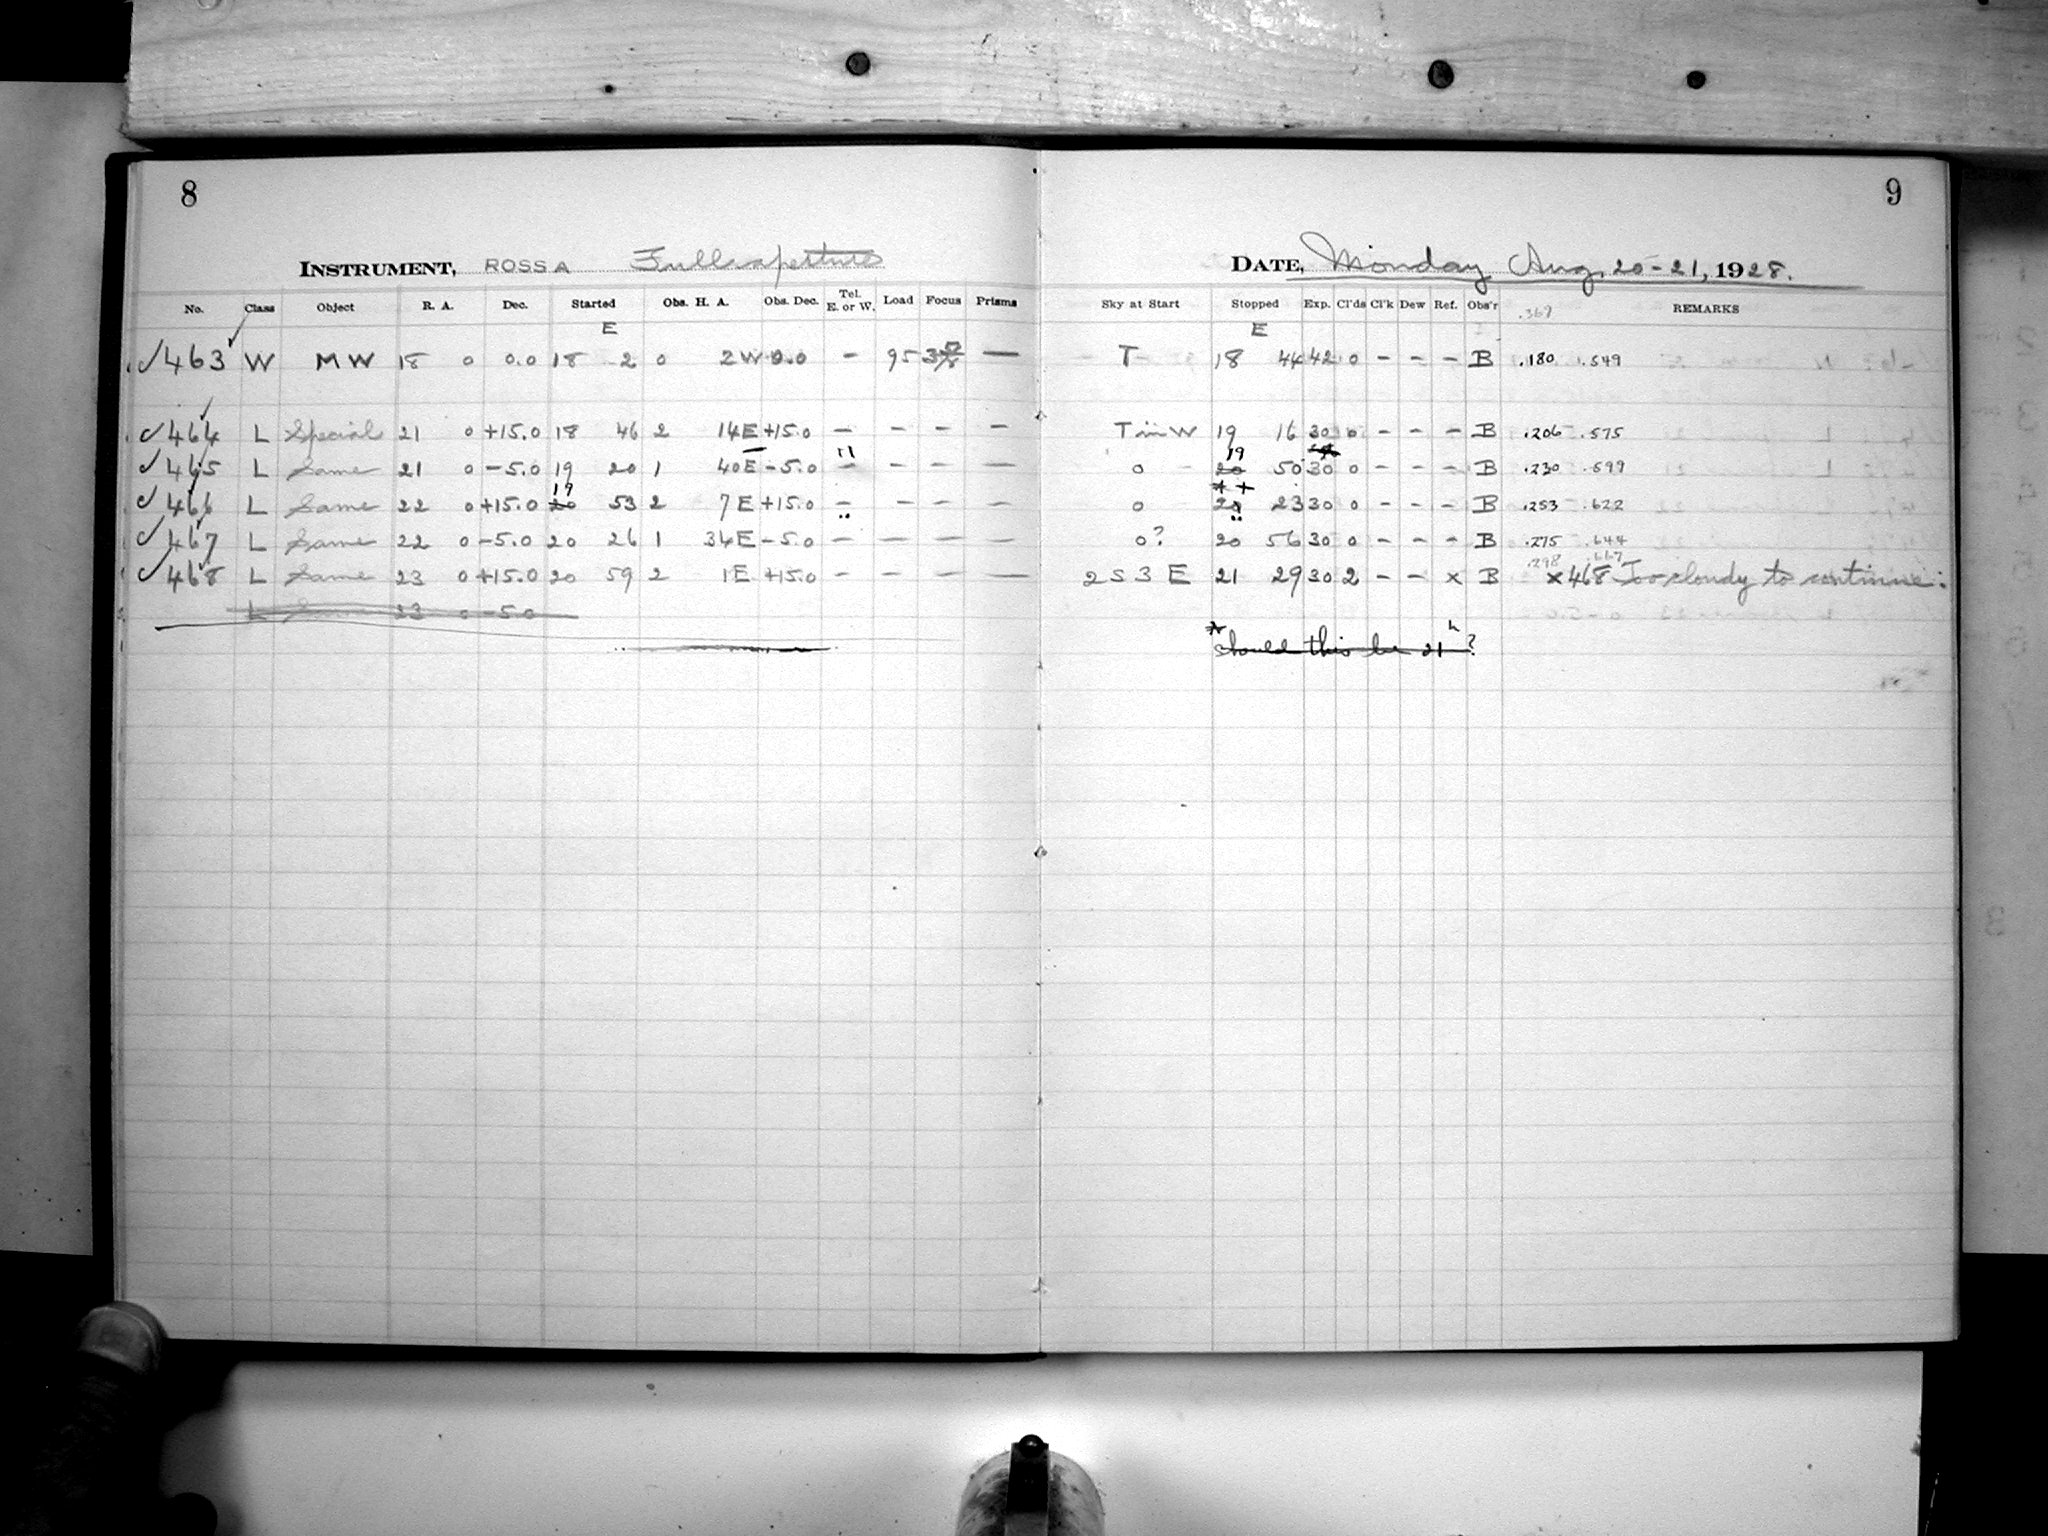 8
9
INSTRUMENT, ROSS A Full aperture
DATE, Monday Aug. 20-21, 1928.
No. Class Object R. A. Dec. Started Obs. H. A. Obs. Dec. Tel. E. or W. Load Focus Prisms Sky at Start Stopped Exp. Cl'ds Cl'k Dew Ref. Obs'r REMARKS
.369
E E
✓463 W MW 18 0 0.0 18 2 0 2W 0.0 – 95 — T 18 44 42 0 – – – B .180 .549
✓464 L Special 21 0 +15.0 18 46 2 14E +15.0 – – – – T in W 19 16 30 0 – – – B .206 .575
19
✓465 L Same 21 0 -5.0 19 20 1 40E -5.0 – – – – 0 20 50 30 0 – – – B .230 .599
19
✓466 L Same 22 0 +15.0 20 53 2 7E +15.0 – – – – 0 20 23 30 0 – – – B .253 .622
✓467 L Same 22 0 -5.0 20 26 1 34E -5.0 – – – – 0? 20 56 30 0 – – – B .275 .644
.298 .667
✓468 L Same 23 0 +15.0 20 59 2 1E +15.0 – – – – 2 S 3 E 21 29 30 2 – – x B x468 Too cloudy to continue.
L Same 23 0 -5.0
* Should this be 21h?